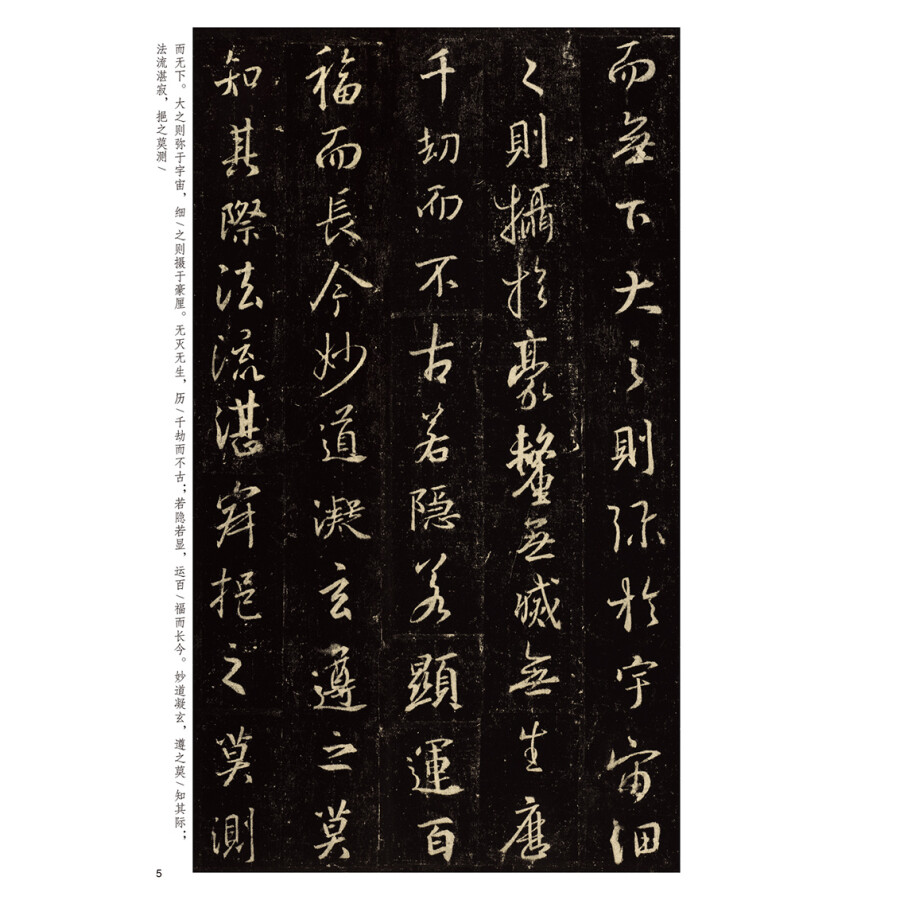 而無下大之則弥於宇宙细
之則攝於豪釐無滅無生歷
千劫而不古若隱若顯運百
福而長今妙道凝玄遵之莫
知其際法流湛寂挹之莫測
而无下。大之则弥于宇宙，细/之则摄于豪厘。无灭无生，历/千劫而不古；若隐若显，运百/福而长今。妙道凝玄，遵之莫/知其际；
法流湛寂，挹之莫测/
5